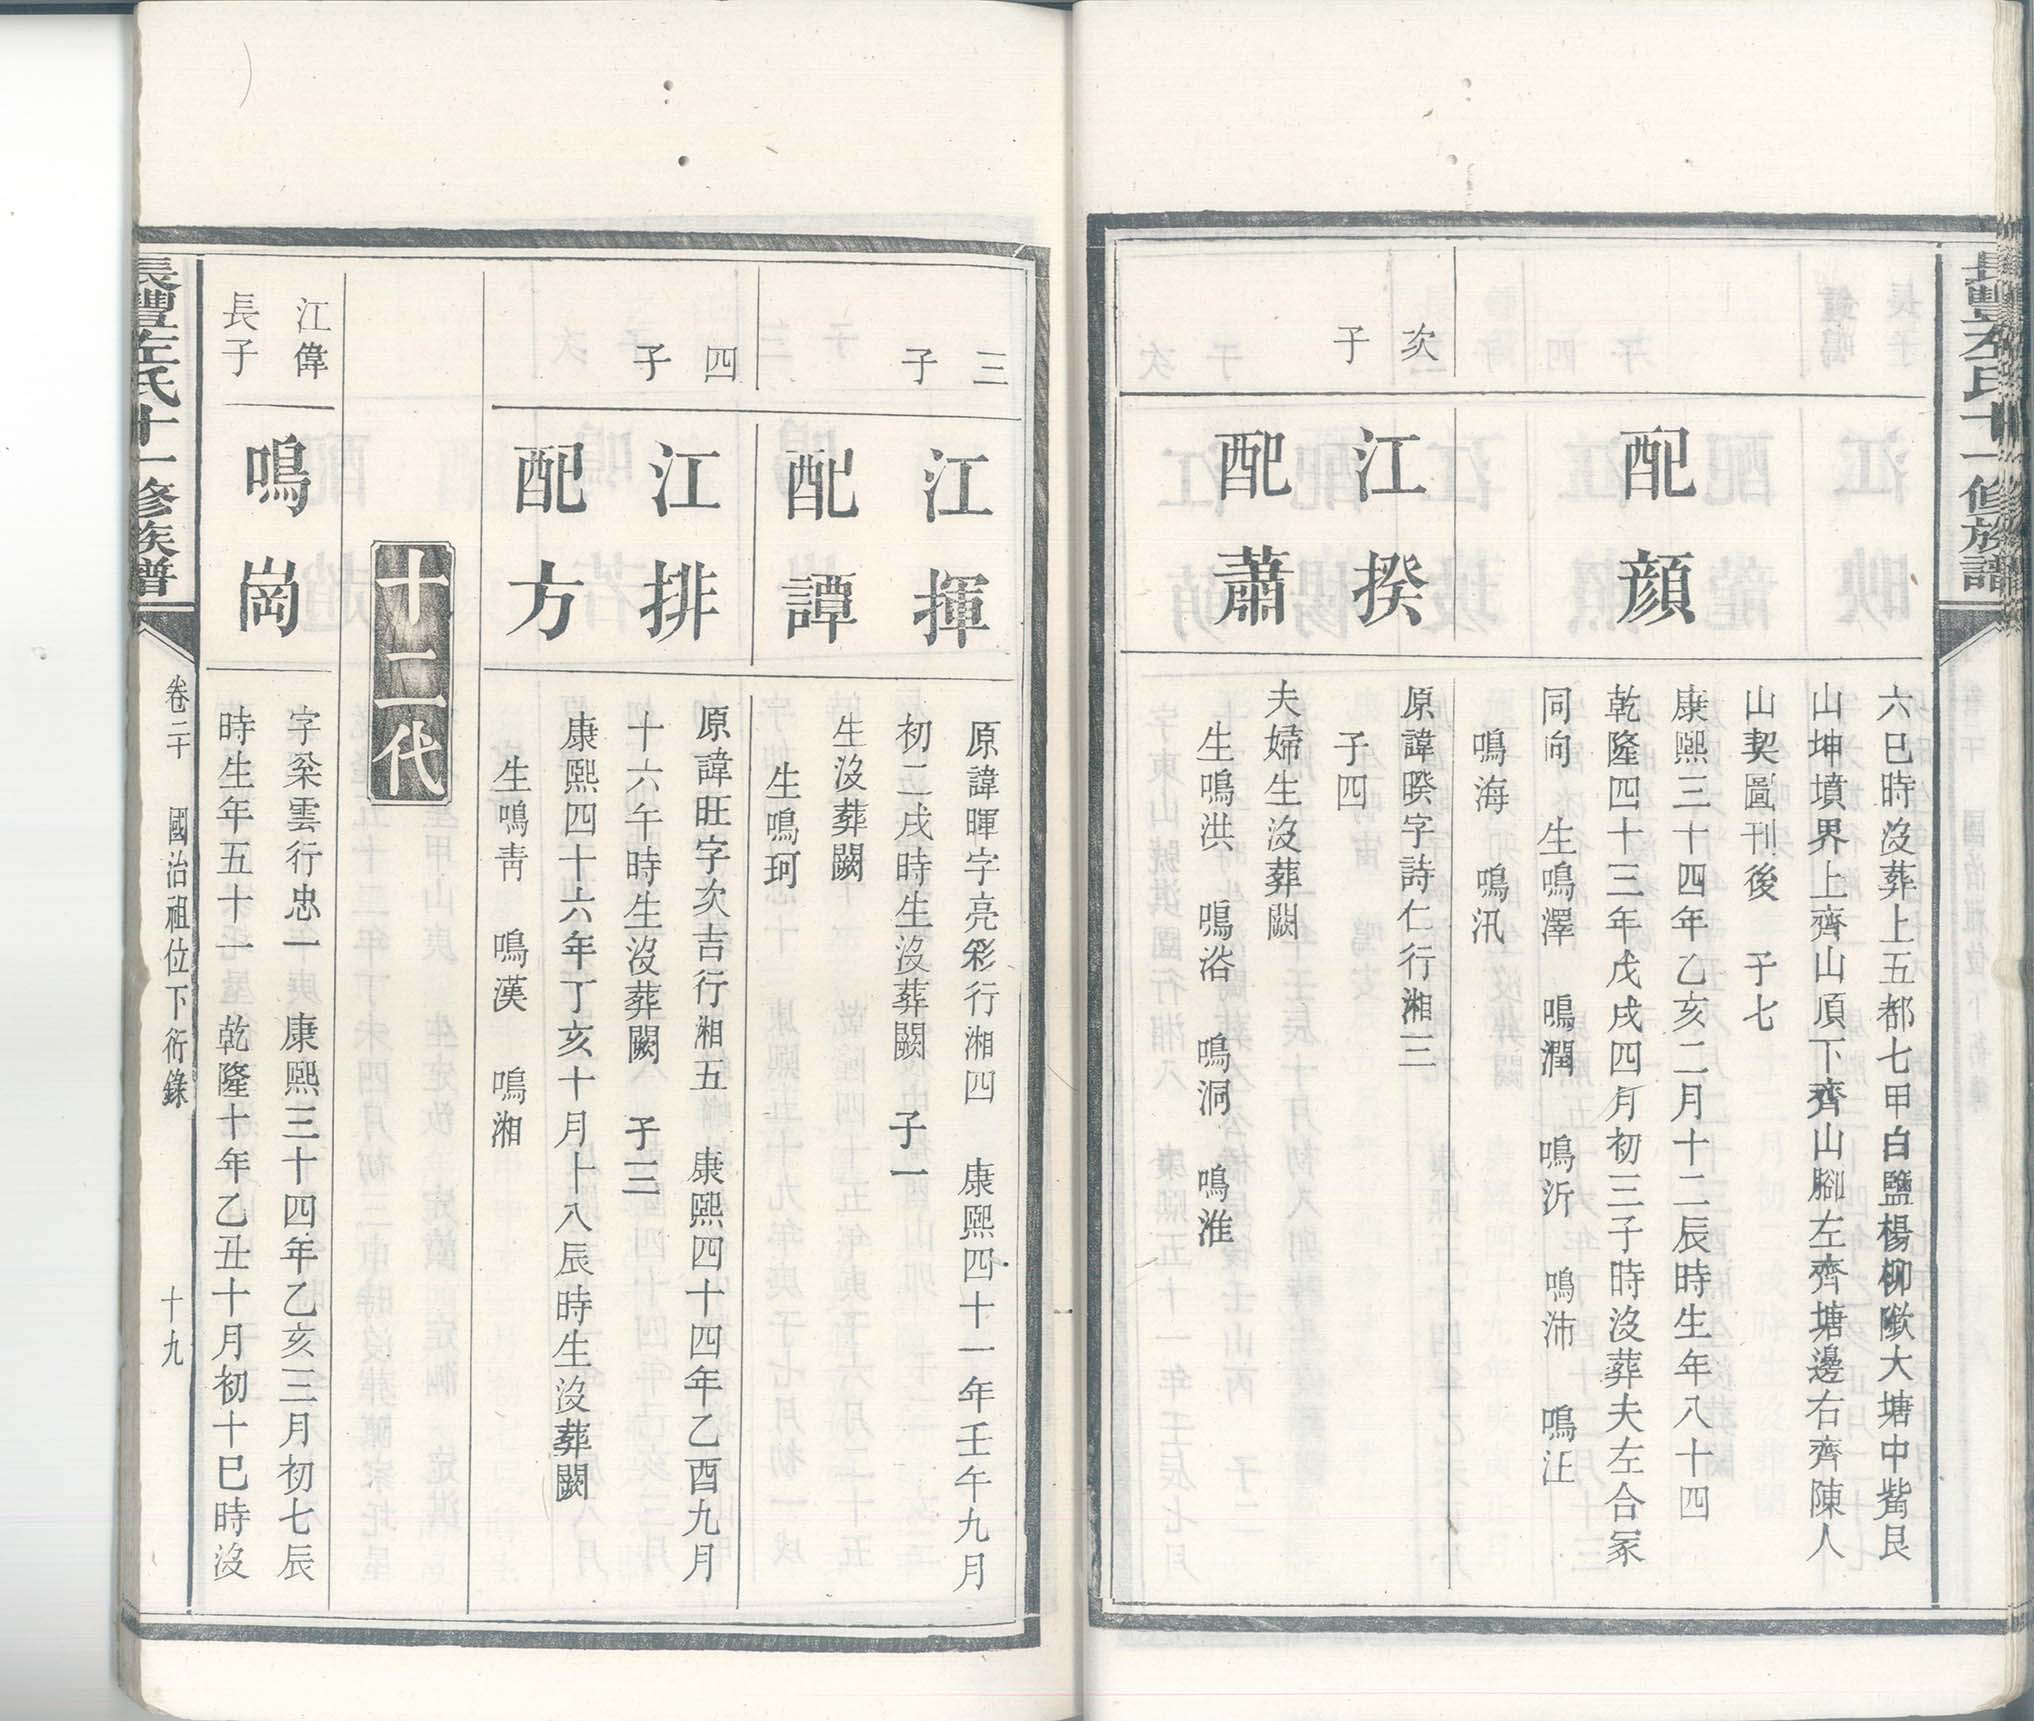 長豐左氏十一修族譜
六巳時沒葬上五都七甲白鹽楊柳塅大塘中觜艮
山坤墳界上齊山頂下齊山腳左齊塘邊右齊陳人
山契圖刊後 子七
配顏
康熙三十四年乙亥二月十二辰時生年八十四
乾隆四十三年戊戌四月初三子時沒葬夫左合冢
同向 生鳴澤 鳴潤 鳴沂 鳴沛 鳴㳏
鳴海 鳴汛
次子
江揆
原諱暌字詩仁行湘三
子四
配蕭
夫婦生沒葬闕
生鳴洪 鳴浴 鳴洞 鳴淮
三子
江揮
原諱暉字亮彩行湘四 康熙四十一年壬午九月
初二戌時生沒葬闕 子一
配譚
生沒葬闕
生鳴珂
四子
江排
原諱旺字次吉行湘五 康熙四十四年乙酉九月
十六午時生沒葬闕 子三
配方
康熙四十六年丁亥十月十八辰時生沒葬闕
生鳴靑 鳴漢 鳴湘
十二代
江偉
長子
鳴崗
字梁雲行忠一 康熙三十四年乙亥三月初七辰
時生年五十一 乾隆十年乙丑十月初十巳時沒
長豐左氏十一修族譜
卷二十 國治祖位下衍錄 十九